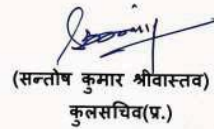 (सन्तोष कुमार श्रीवास्तव)
कुलसचिव(प्र.)